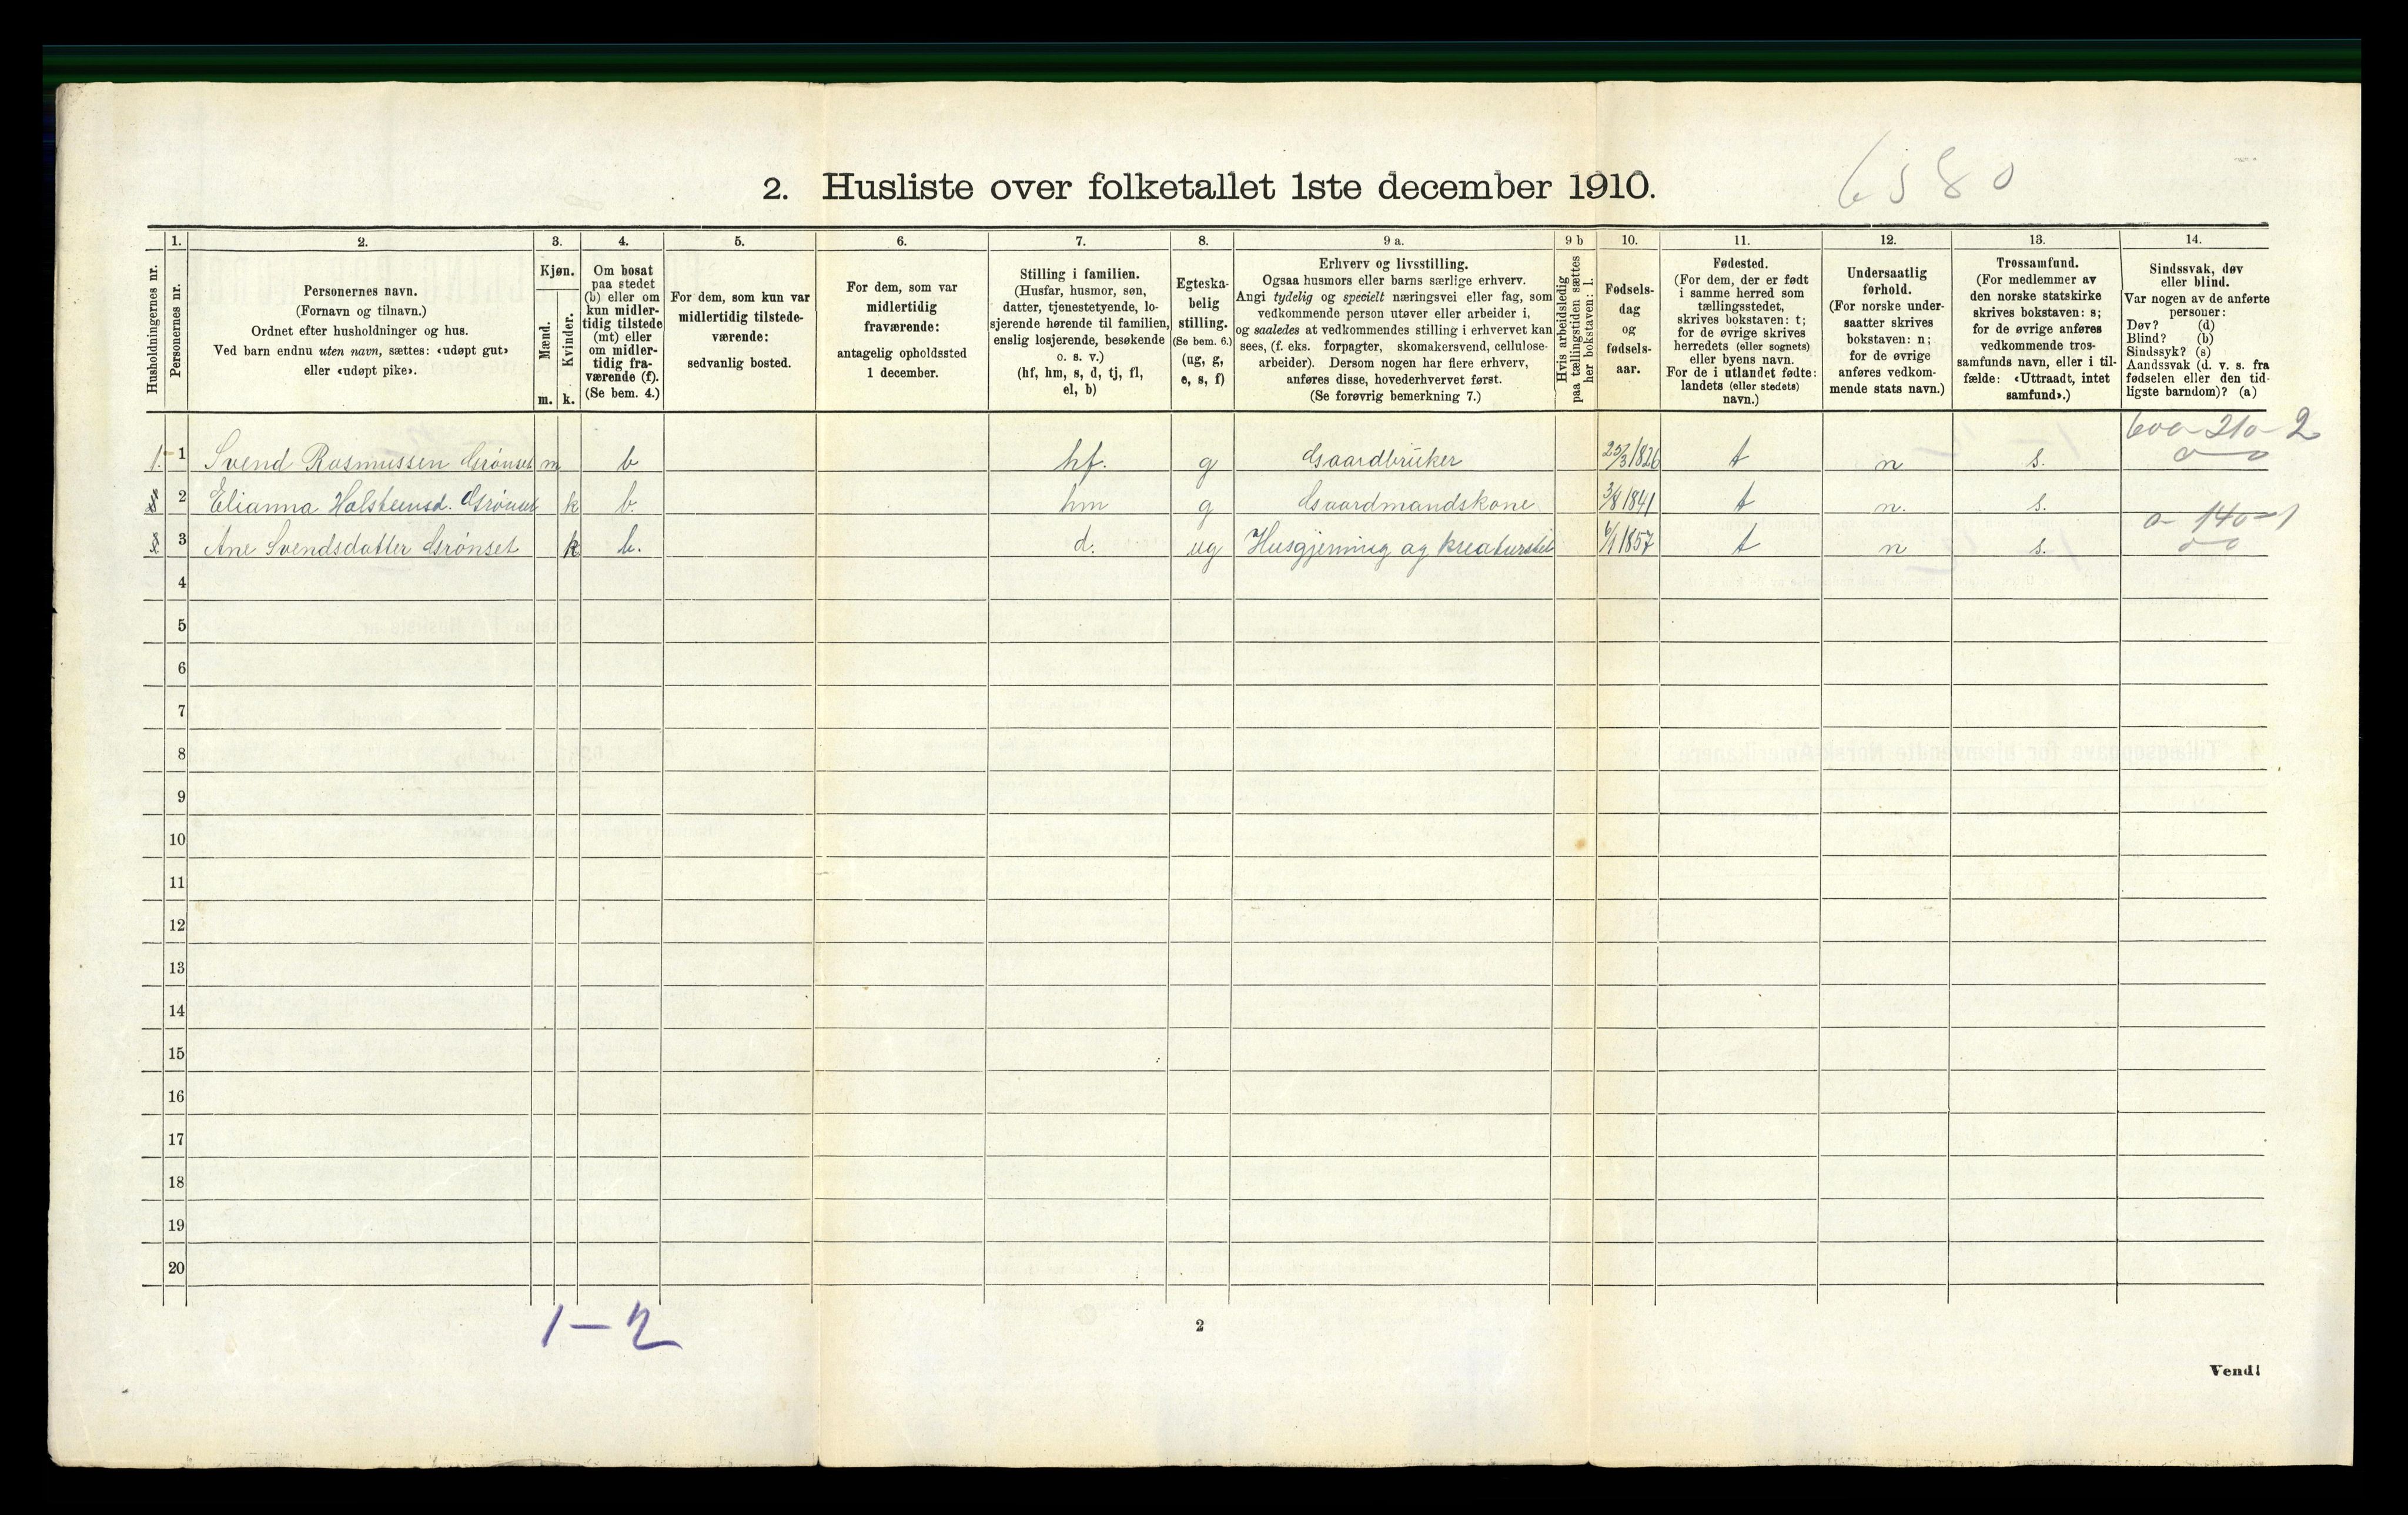 6580
2. Husliste over folketallet 1ste december 1910.
Husholdningernes nr.
1. 2. 3. 4. 5. 6. 7. 8. 9 a. 9 b 10. 11. 12. 13. 14.
Personernes nr.
Personernes navn.
(Fornavn og tilnavn.)
Ordnet efter husholdninger og hus.
Ved barn endnu uten navn, sættes: «udøpt gut»
eller «udøpt pike».
Kjøn.
Mænd.
Kvinder.
m. k.
Om bosat
paa stedet
(b) eller om
kun midler-
tidig tilstede
(mt) eller
om midler-
tidig fra-
værende (f).
(Se bem. 4.)
For dem, som kun var
midlertidig tilstede-
værende:
sedvanlig bosted.
For dem, som var
midlertidig
fraværende:
antagelig opholdssted
1 december.
Stilling i familien.
(Husfar, husmor, søn,
datter, tjenestetyende, lo-
sjerende hørende til familien,
enslig losjerende, besøkende
o. s. v.)
(hf, hm, s, d, tj, fl,
el, b)
Egteska-
belig
stilling.
(Se bem. 6.)
(ug, g,
e, s, f)
Erhverv og livsstilling.
Ogsaa husmors eller barns særlige erhverv.
Angi tydelig og specielt næringsvei eller fag, som
vedkommende person utøver eller arbeider i,
og saaledes at vedkommendes stilling i erhvervet kan
sees, (f. eks. forpagter, skomakersvend, cellulose-
arbeider). Dersom nogen har flere erhverv,
anføres disse, hovederhvervet først.
(Se forøvrig bemerkning 7.)
Hvis arbeidsledig
paa tællingstiden sættes
her bokstaven: l.
Fødsels-
dag
og
fødsels-
aar.
Fødested.
(For dem, der er født
i samme herred som
tællingsstedet,
skrives bokstaven: t;
for de øvrige skrives
herredets (eller sognets)
eller byens navn.
For de i utlandet fødte:
landets (eller stedets)
navn.)
Undersaatlig
forhold.
(For norske under-
saatter skrives
bokstaven: n;
for de øvrige
anføres vedkom-
mende stats navn.)
Trossamfund.
(For medlemmer av
den norske statskirke
skrives bokstaven: s;
for de øvrige anføres
vedkommende tros-
samfunds navn, eller i til-
fælde: «Uttraadt, intet
samfund».)
Sindssvak, døv
eller blind.
Var nogen av de anførte
personer:
Døv? (d)
Blind? (b)
Sindssyk? (s)
Aandssvak (d. v. s. fra
fødselen eller den tid-
ligste barndom)? (a)
600-210-2
1. 1 Svend Rasmussen Grønset m b hf. g Gaardbruker 25/3 1826 t n s.
2 Elianna Halsteensd. Grønset k b. hm g Gaardmandskone 3/8 1841 t n. s.
0-140-1
3 Ane Svendsdatter Grønset k b. d. ug Husgjerning og kreaturstel 6/1 1857 t n s.
4
5
6
7
8
9
10
11
12
13
14
15
16
17
18
19
20
1-2
2
Vend!